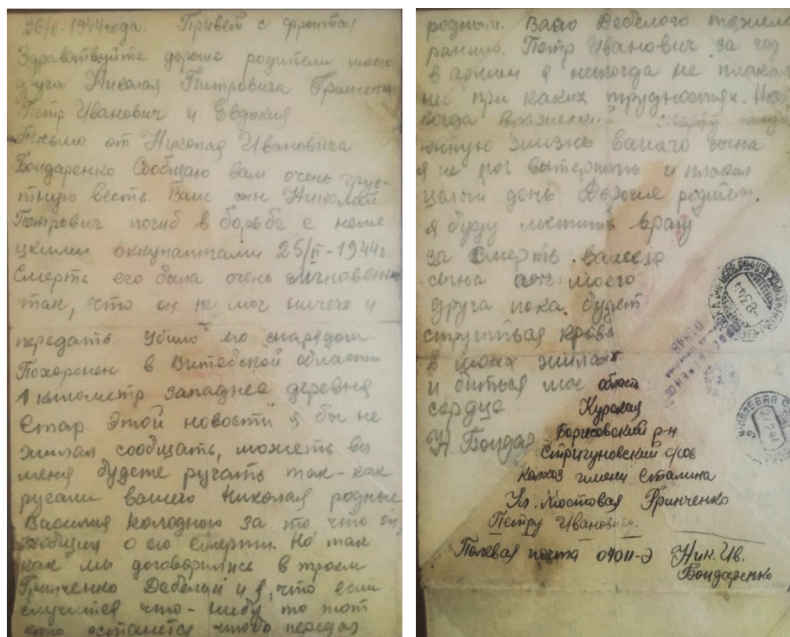 26/II-1944года. Привет с фронта!
Здравствуйте дорогие родители моего
друга Николая Питровича Гринченко
Петр Иванович и Евдокия
Письмо от Николая Ивановича
Бондаренко Сообщаю вам очень грус-
тную весть. Ваш сын Николай
Петрович погиб в борьбе с неме
цкими оккупантами 25/II-1944г.
Смерть его была очень мгновенн
так, что он не мог ничего и
передать. Убило его снарядом
Похоронен в Витебской области
1 километр западнее деревня
Стар Этой новости я бы не
желал сообщать, можеть вы
меня будете ругать так-как
ругали вашего Николая родные
Василия Колодного за то что он
сообщил о его смерти. Но так
как мы договорились в троем
Гринченко Дебелый и я, что если
случится что-нибудь то тот
кто останется чтобы передал
родным. Ваню Дебелого тяжело
ранило. Петр Иванович за год
в армии я никогда не плакал
ни при каких трудностях. Но
когда вражеский
юнную жизнь вашего сына
я не мог вытерпеть и плакал
целый день Дорогие родители.
я буду мстить врагу
за смерть вашего
сына моего
друга пока будет
струиться кровь
в моих жилах
и биться мое
сердце
Н. Бондар
область
Курская
Борисовский р-н
Стригуновский с/сов
Колхоз имени Сталина
Ул. Мостовая Гринченко
Петру Иванович.
Полевая почта 04011-Э Ник. Ив.
Бондаренко